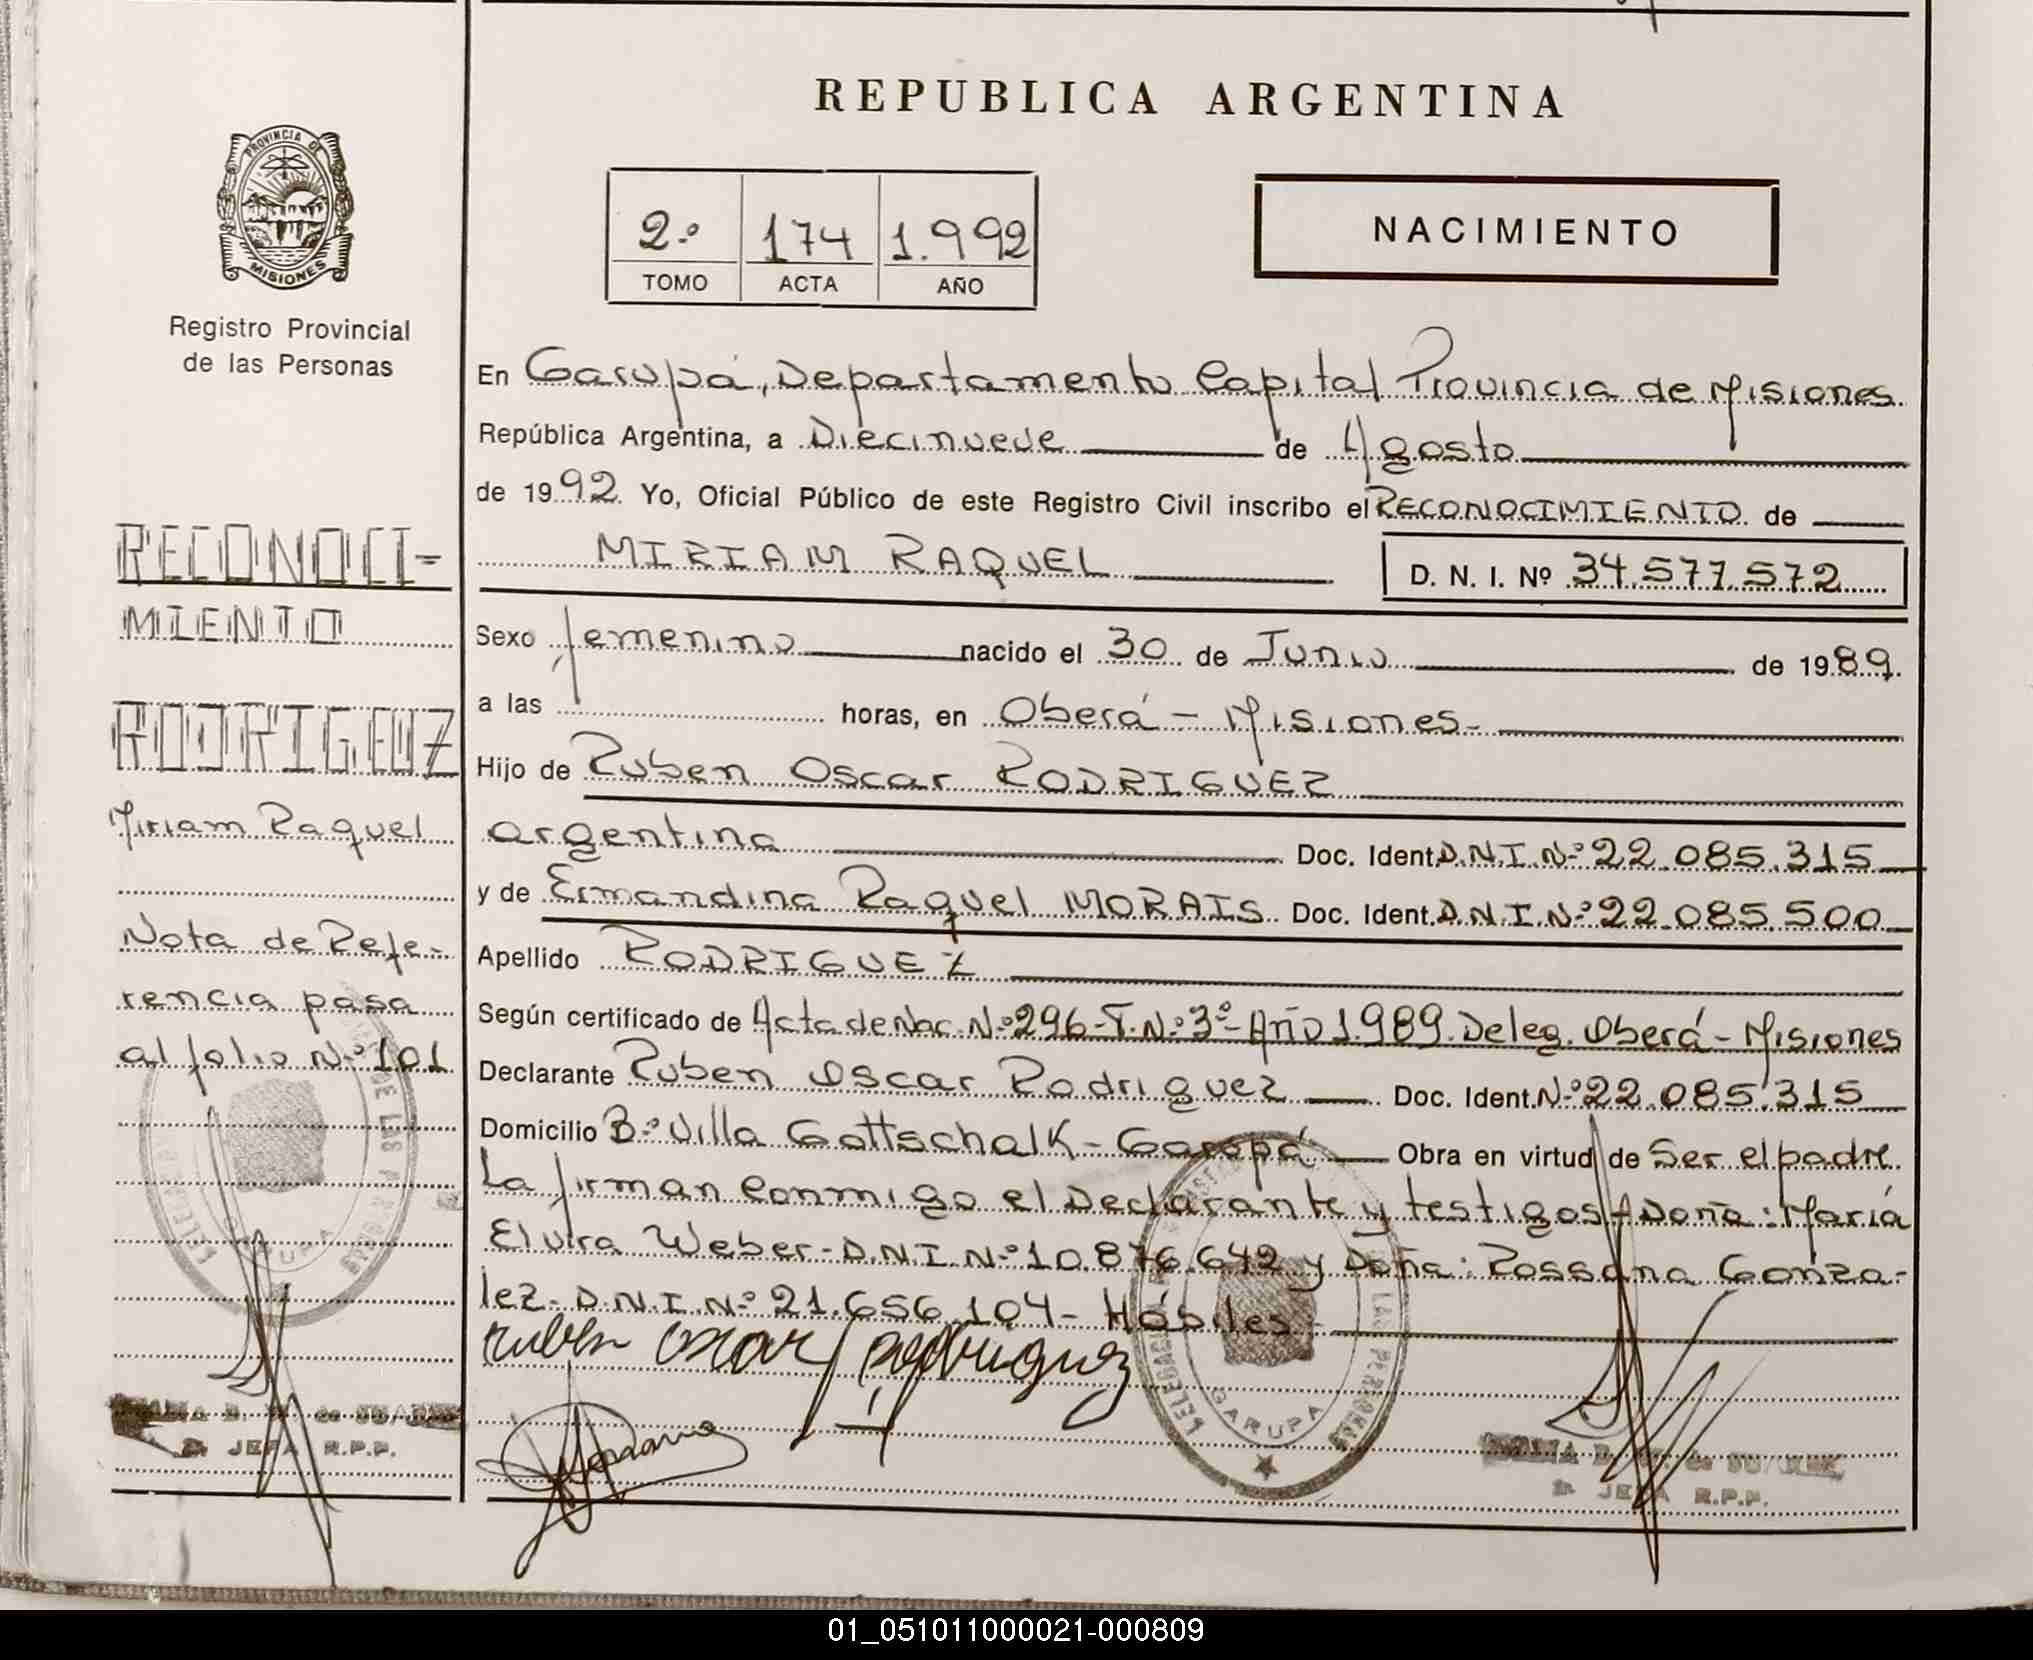 REPUBLICA ARGENTINA
PROVINCIA DE
MISIONES
Registro Provincial
de las Personas
2.º 174 1.992
TOMO ACTA AÑO
NACIMIENTO
En Garupá, Departamento Capital Provincia de Misiones
República Argentina, a Diecinueve de Agosto
de 1992. Yo, Oficial Público de este Registro Civil inscribo el RECONOCIMIENTO de
MIRIAM RAQUEL D. N. I. Nº 34.577.572
Sexo femenino nacido el 30 de Junio de 1989.
a las horas, en Oberá - Misiones-
Hijo de Ruben Oscar RODRIGUEZ
argentina Doc. Ident. D.N.I. Nº 22.085.315
y de Ermandina Raquel MORAIS Doc. Ident. D.N.I. Nº 22.085.500
Apellido RODRIGUEZ
Según certificado de Acta de Nac. Nº 296-T. Nº 3º- Año 1.989. Deleg. Oberá - Misiones
Declarante Ruben Oscar Rodriguez Doc. Ident. Nº 22.085.315
Domicilio Bº Villa Gottschalk - Garupá Obra en virtud de Ser el padre.
La firman conmigo el Declarante y testigos Doña: María
Elvira Weber- D.N.I. Nº 10.876.642 y Doña: Rossana Gonza-
lez- D.N.I. Nº 21.656.104- Hábiles
Ruben Oscar Rodriguez
GARUPA
JEFA R.P.P.
RECONOCI-
MIENTO
RODRIGUEZ
Miriam Raquel
Nota de Refe-
rencia pasa
al folio Nº 101
DE LAS
GARUPA
JEFA R.P.P.
01_051011000021-000809